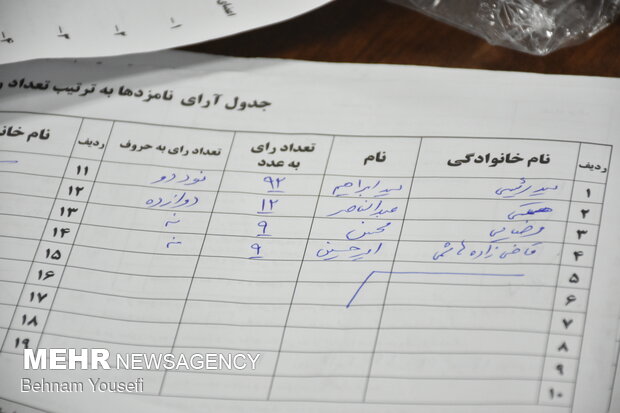 جدول آرای نامزدها به ترتیب تعداد
ردیف نام خانوادگی نام تعداد رای به عدد تعداد رای به حروف ردیف
۱ سید رئیسی سید ابراهیم ۹۲ نود دو ۱۱
۲ همتی عبدالناصر ۱۲ دوازده ۱۲
۳ رضایی محسن ۹ نه ۱۳
۴ قاضی زاده هاشمی امیرحسین ۹ نه ۱۴
۵ ۱۵
۶ ۱۶
۷ ۱۷
۸ ۱۸
۹ ۱۹
۱۰
MEHR NEWSAGENCY
Behnam Yousefi